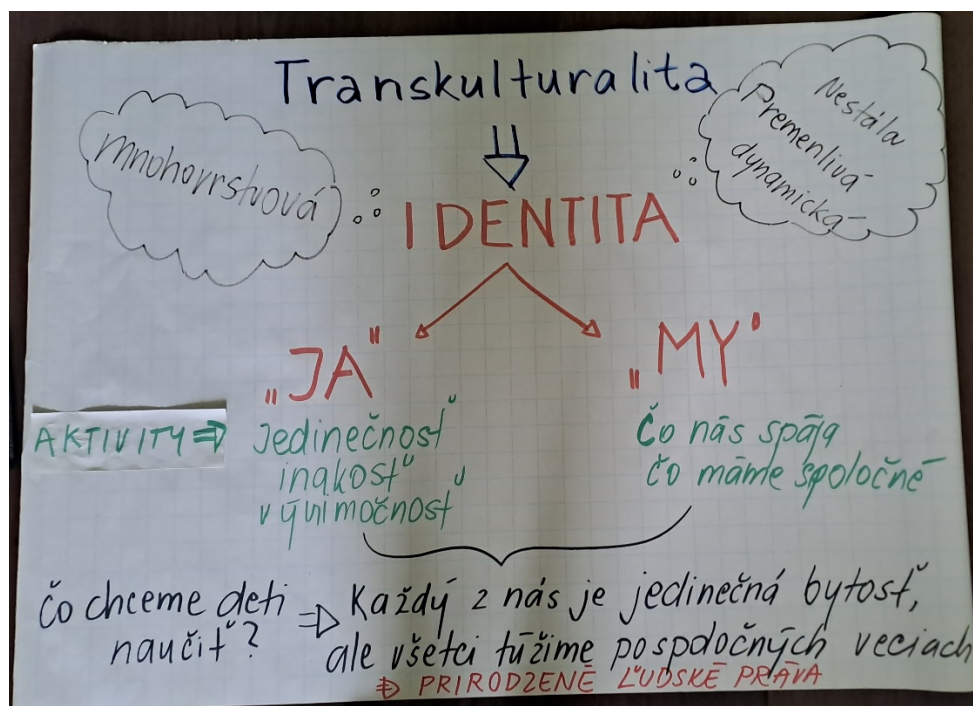 Transkulturalita
mnohovrstvová
Nestála
Premenlivá
dynamická
IDENTITA
„JA"
„MY"
AKTIVITY ⇒
Jedinečnosť
inakosť
výnimočnosť
Čo nás spája
čo máme spoločné
čo chceme deti
naučiť?
⇒ Každý z nás je jedinečná bytosť,
ale všetci túžime po spoločných veciach
⇒ PRIRODZENÉ ĽUDSKÉ PRÁVA